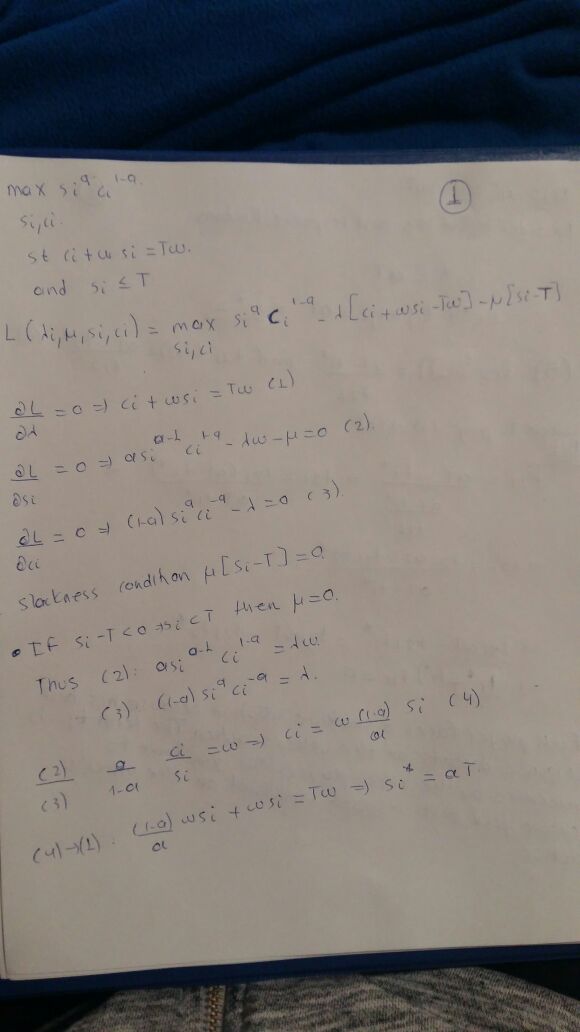 ①
max si^a ci^1-a.
si,ci.
st ci + w si = Tw.
and si ≤ T
L(λi, μ, si, ci) = max si^a ci^1-a - λ[ci + wsi - Tw] - μ[si - T]
si, ci
∂L/∂λ = 0 => ci + wsi = Tw (1)
∂L/∂si = 0 => asi^a-1 ci^1-a - λw - μ = 0 (2).
∂L/∂ci = 0 => (1-a) si^a ci^-a - λ = 0 (3).
Slackness condition μ[si - T] = 0.
• If si - T < 0 => si < T then μ = 0.
Thus (2): asi^a-1 ci^1-a = λw.
(3) (1-a) si^a ci^-a = λ.
(2)/(3) a/1-a ci/si = w => ci = w (1-a)/a si (4)
(4)→(1): (1-a)/a wsi + wsi = Tw => si* = aT